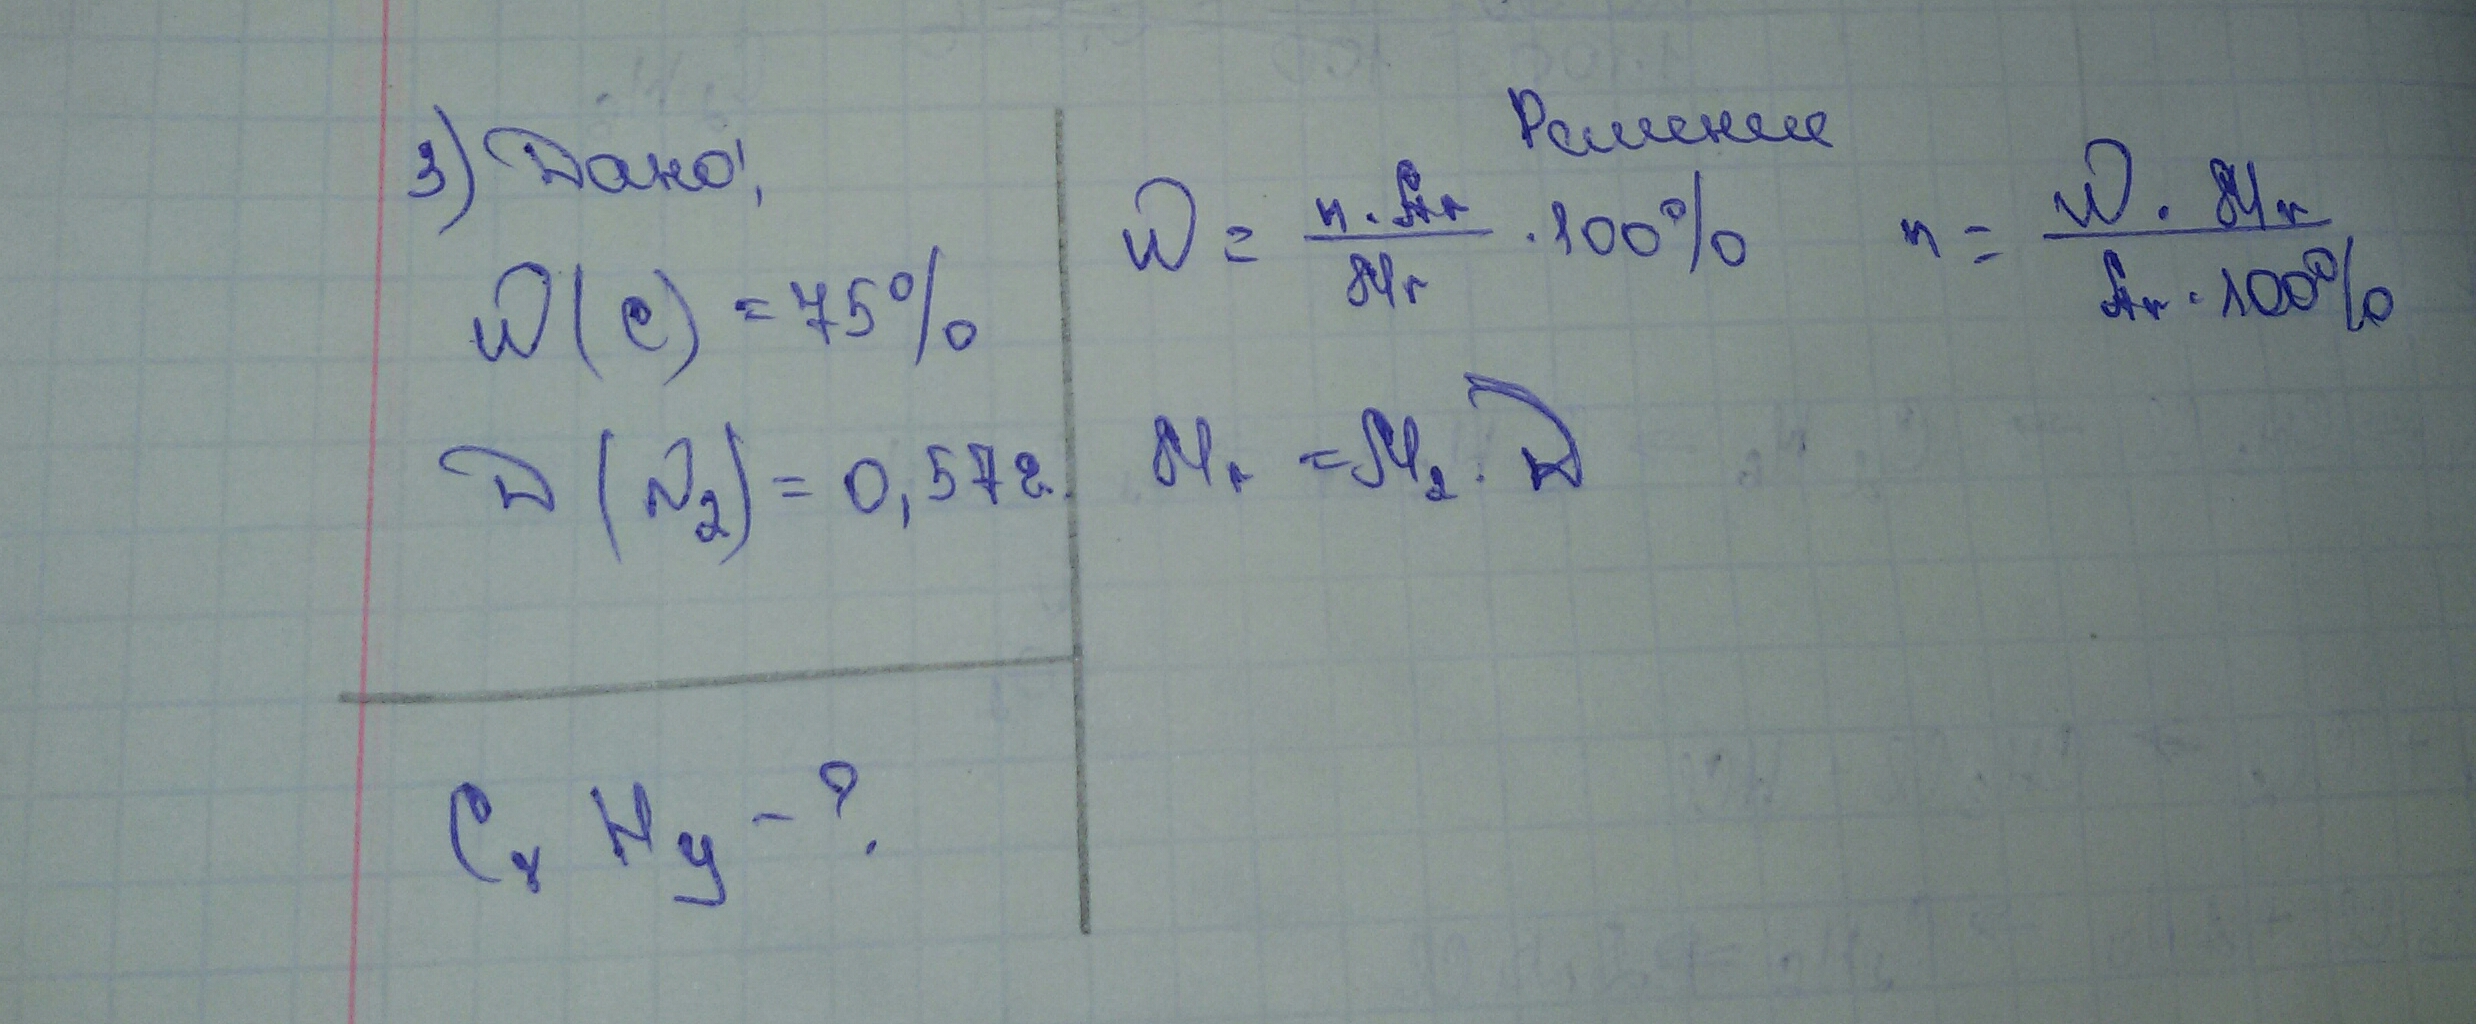 3) Дано:
W(C) = 75%
D(N₂) = 0,572.
CxHy - ?
Решение
W = n · Ar / Mr · 100% n = W · Mr / Ar · 100%
Mr = M₂ · D